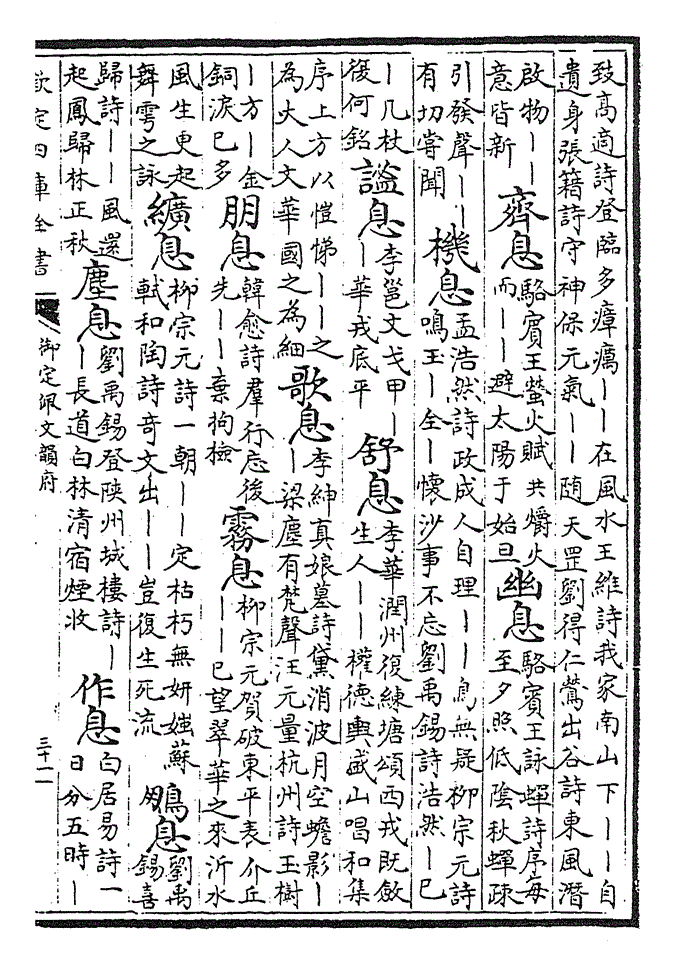 致高適詩登臨多瘴癘丨丨在風水王維詩我家南山下丨丨自
遺身張籍詩守神保元氣丨丨随天罡劉得仁鶯出谷詩東風潛
啟物丨丨
意皆新
齊息
駱賓王螢火賦共爝火
而丨丨避太陽于始旦
幽息
駱賓王詠蟬詩序毎
至夕照低陰秋蟬疎
引發聲丨丨
有切嘗聞
機息
孟浩然詩政成人自理丨丨鳥無疑柳宗元詩
鳴玉丨全丨懷沙事不忘劉禹錫詩浩然丨已
丨几杖
後何銘
謐息
李邕文戈甲丨
丨華戎底平
舒息
李華潤州復練塘頌西戎既斂
生人丨丨權德輿盛山唱和集
序上方以愷悌丨丨之
為大人文華國之為細
歌息
李紳真娘墓詩黛消波月空蟾影丨
丨梁塵有梵聲汪元量杭州詩玉樹
丨方丨金
銅淚已多
朋息
韓愈詩羣行忘後
先丨丨棄拘檢
霧息
柳宗元賀破東平表介丘
丨丨已望翠華之來沂水
風生更起
舞雩之詠
纊息
柳宗元詩一朝丨丨定枯朽無妍媸蘇
軾和陶詩奇文出丨丨豈復生死流
鵬息
劉禹
錫喜
歸詩丨丨風還
起鳳歸林正秋
塵息
劉禹錫登陜州城樓詩丨
丨長道白林清宿煙收
作息
白居易詩一
日分五時丨
欽定四庫全書
御定佩文韻府
三十一